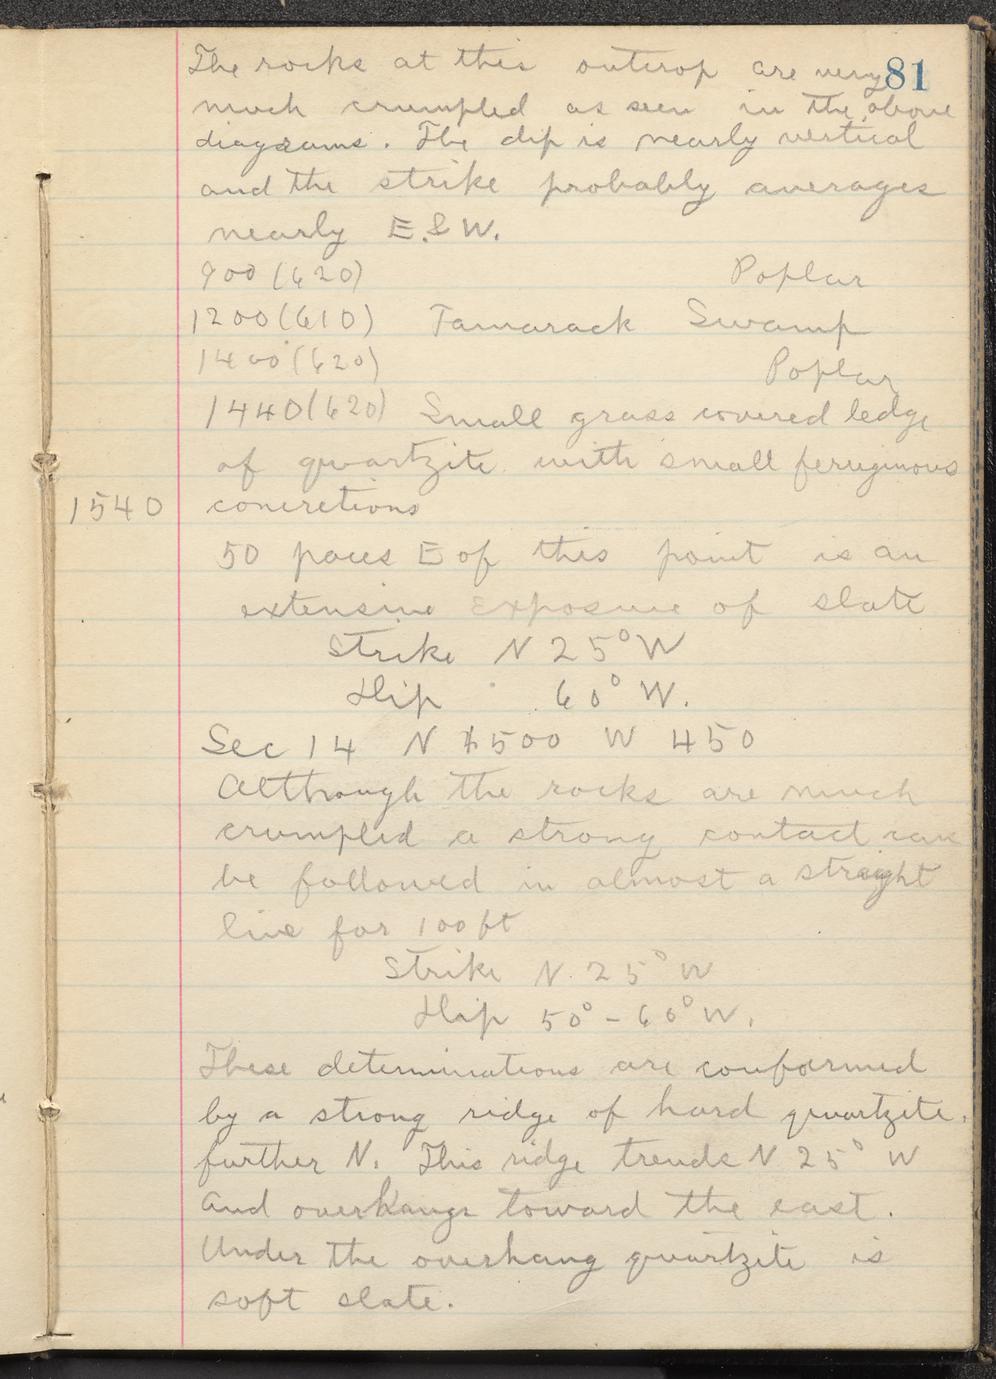 81
The rocks at this outcrop are very
much crumpled as seen in the above
diagrams. The dip is nearly vertical
and the strike probably averages
nearly E. & W.
900 (620) Poplar
1200 (610) Tamarack Swamp
1400 (620) Poplar
1440 (620) Small grass covered ledge
of quartzite with small ferruginous
1540 concretions
50 paces E of this point is an
extensive exposure of slate
Strike N 25° W
Dip 60° W.
Sec 14 N 1500 W 450
Although the rocks are much
crumpled a strong contact can
be followed in almost a straight
line for 100 ft
Strike N. 25° W
Dip 50° - 60° W.
These determinations are conformed
by a strong ridge of hard quartzite.
further N. This ridge trends N 25° W
and overhangs toward the east.
Under the overhang quartzite is
soft slate.